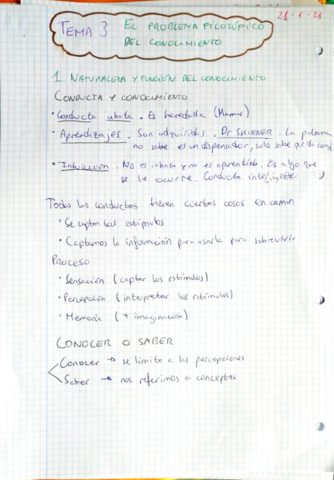 21-1-21
TEMA 3 EL PROBLEMA FILOSÓFICO
DEL CONOCIMIENTO
1. NATURALEZA Y FUNCIÓN DEL CONOCIMIENTO
CONDUCTA Y CONOCIMIENTO
· Conducta innata. Es heredada (Mamar)
· Aprendizajes. Son adquiridos. Dr SKINNER. La paloma
no sabe es un dispensador, solo sabe que da
· Intuición. No es innata y no es aprendida. Es algo que
se le ocurre. Conducta inteligente
Todas las conductas tienen ciertas cosas en común
· Se captan los estímulos
· Captamos la información para usarla para sobrevivir
PROCESO
· Sensación (captar los estímulos)
· Percepción (interpretar los estímulos)
· Memoria (+ imaginación)
CONOCER O SABER
Conocer → se limita a las percepciones
Saber → nos referimos a conceptos